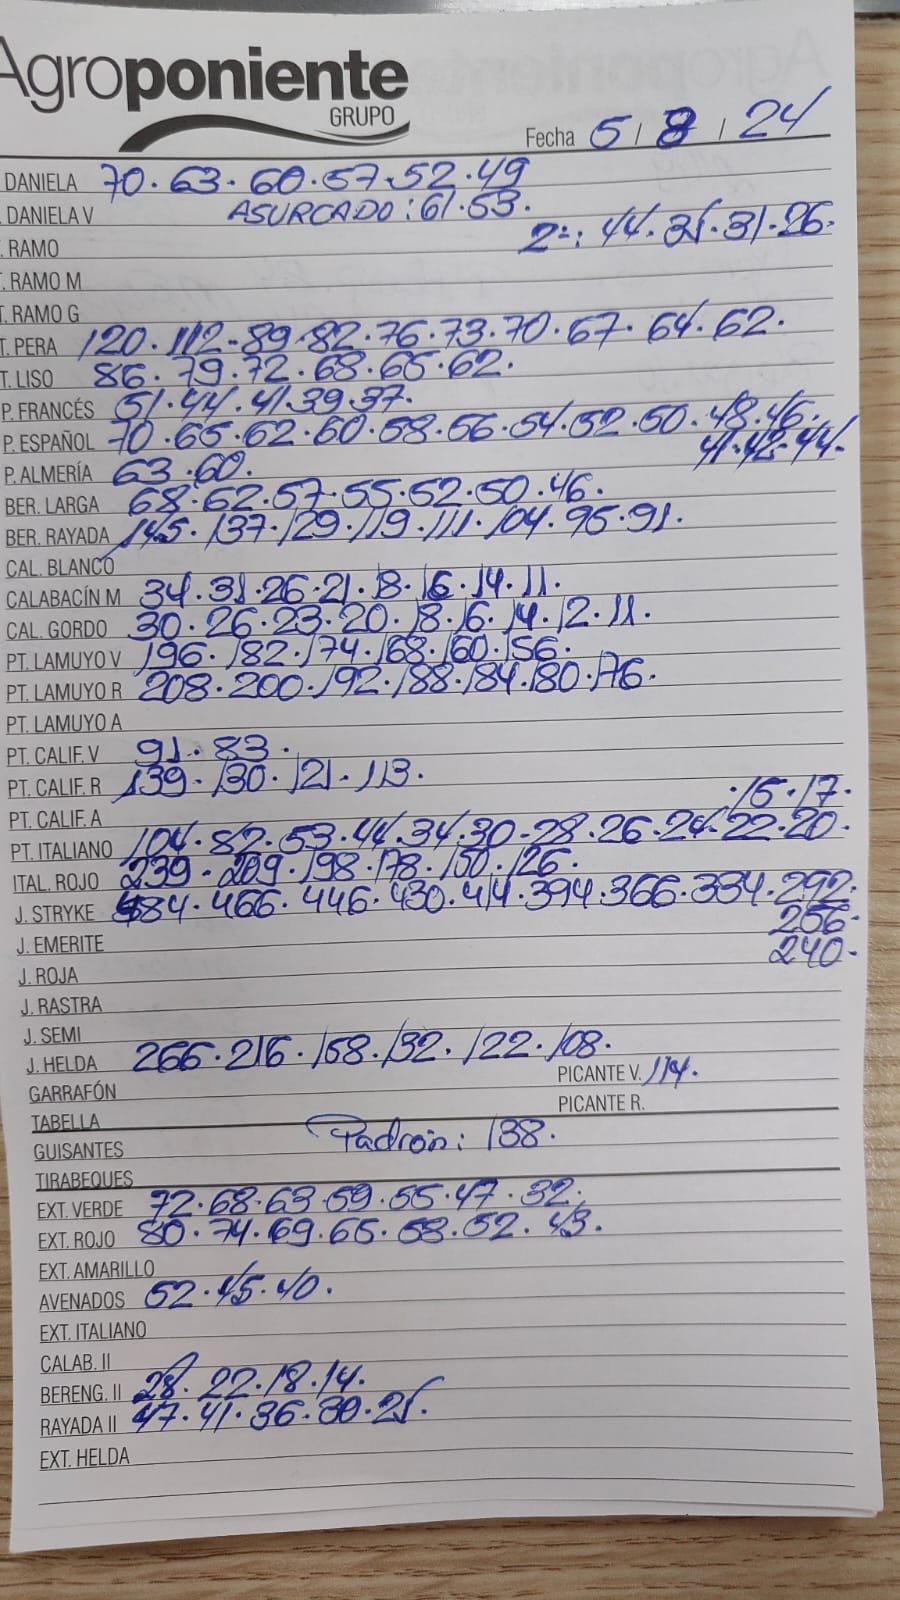 Agroponiente
GRUPO
Fecha 5 / 8 / 24
DANIELA 70. 63. 60. 57. 52. 49
DANIELA V ASURCADO: 61. 53.
T. RAMO 2ª: 44. 35. 31. 26.
T. RAMO M
T. RAMO G
T. PERA 120. 112. 89. 82. 76. 73. 70. 67. 64. 62.
T. LISO 86. 79. 72. 68. 65. 62.
P. FRANCÉS 51. 44. 41. 39. 37.
P. ESPAÑOL 70. 65. 62. 60. 58. 56. 54. 52. 50. 48. 46.
41. 42. 44.
P. ALMERÍA 63. 60.
BER. LARGA 68. 62. 57. 55. 52. 50. 46.
BER. RAYADA 145. 137. 129. 119. 111. 104. 95. 91.
CAL. BLANCO
CALABACÍN M 34. 31. 26. 21. 18. 16. 14. 11.
CAL. GORDO 30. 26. 23. 20. 18. 16. 14. 12. 11.
PT. LAMUYO V 196. 182. 174. 168. 160. 156.
PT. LAMUYO R 208. 200. 192. 188. 184. 180. 176.
PT. LAMUYO A
PT. CALIF. V 91. 83.
PT. CALIF. R 139. 130. 121. 113.
PT. CALIF. A . 15. 17.
PT. ITALIANO 104. 82. 53. 44. 34. 30. 28. 26. 24. 22. 20.
ITAL. ROJO 239. 209. 198. 178. 150. 126.
J. STRYKE 484. 466. 446. 430. 414. 394. 366. 334. 292.
256.
J. EMERITE 240.
J. ROJA
J. RASTRA
J. SEMI
J. HELDA 266. 216. 158. 132. 122. 108.
GARRAFÓN PICANTE V. 114.
TABELLA PICANTE R.
GUISANTES Padrón: 138.
TIRABEQUES
EXT. VERDE 72. 68. 63. 59. 55. 47. 32.
EXT. ROJO 80. 74. 69. 65. 58. 52. 43.
EXT. AMARILLO
AVENADOS 52. 45. 40.
EXT. ITALIANO
CALAB. II
BERENG. II 28. 22. 18. 14.
RAYADA II 47. 41. 36. 30. 25.
EXT. HELDA